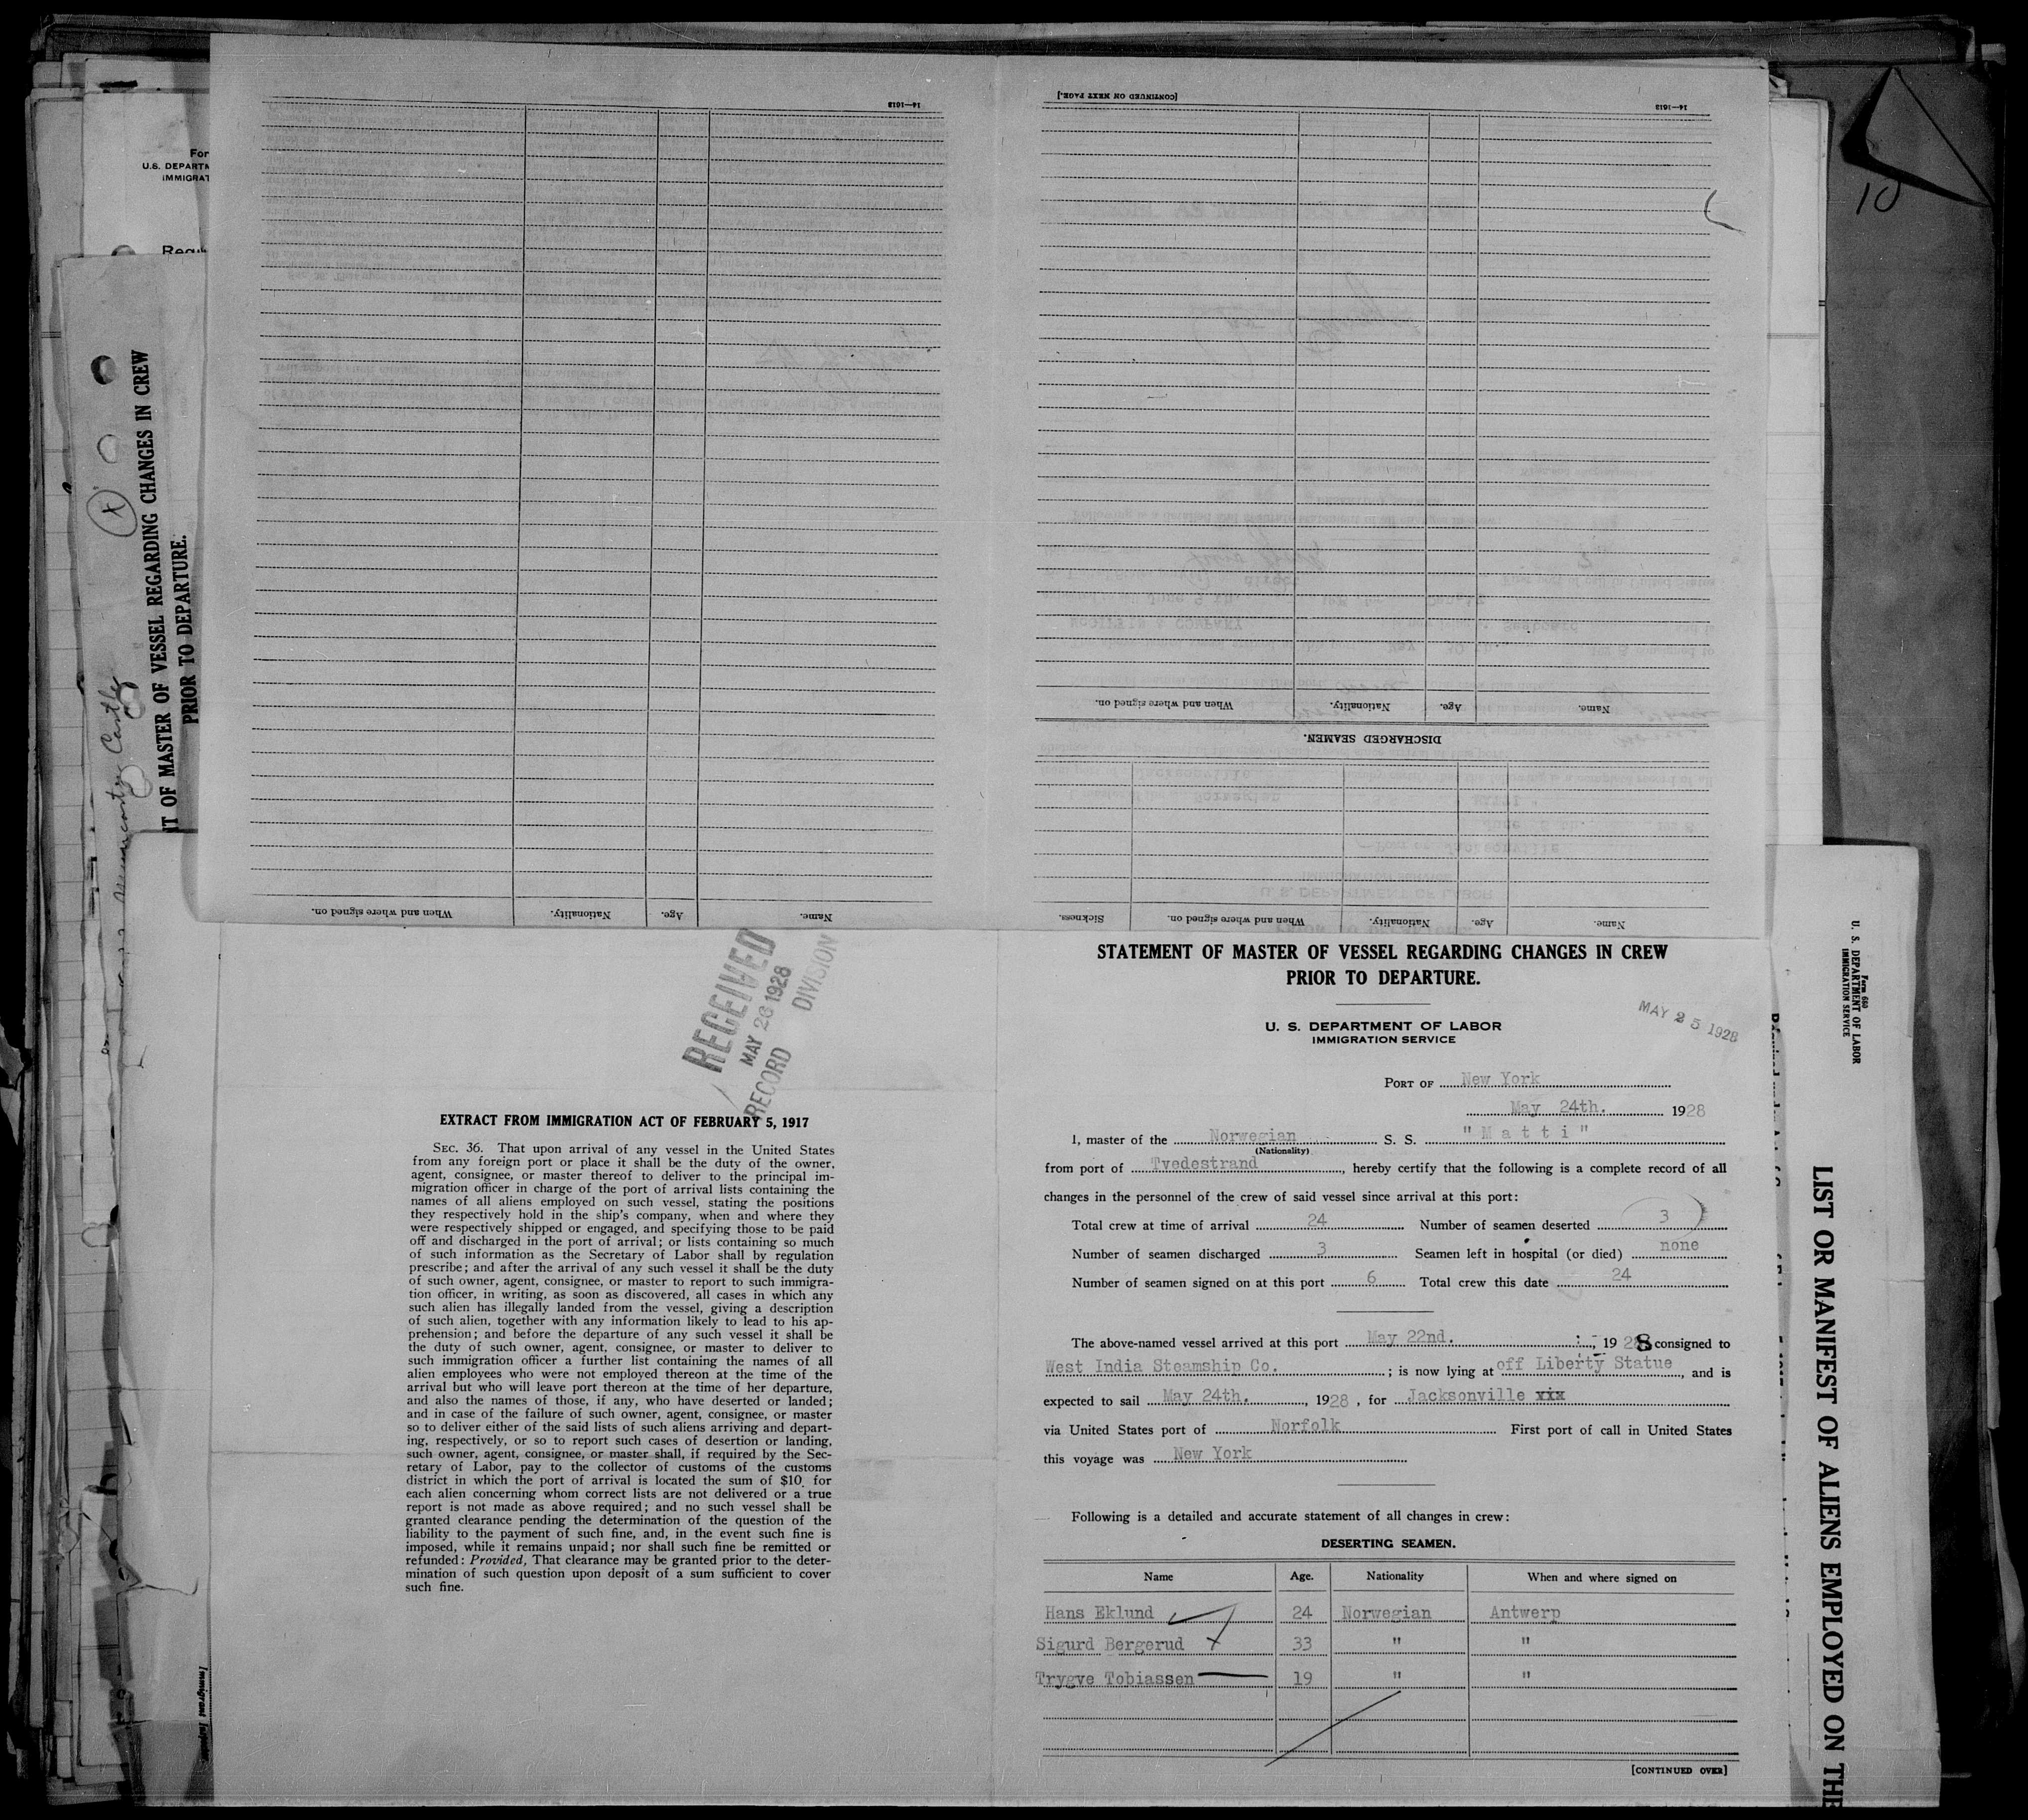 For
U.S. DEPARTM
IMMIGRAT
NT OF MASTER OF VESSEL REGARDING CHANGES IN CREW
PRIOR TO DEPARTURE.
X
14—1618
Name.
Age.
Nationality.
When and where signed on.
[CONTINUED ON NEXT PAGE.]
14—1618
Name.
Age.
Nationality.
When and where signed on.
DISCHARGED SEAMEN.
Name.
Age.
Nationality.
When and where signed on.
Sickness.
10
RECEIVED
MAY 26 1928
RECORD DIVISION
EXTRACT FROM IMMIGRATION ACT OF FEBRUARY 5, 1917
SEC. 36. That upon arrival of any vessel in the United States
from any foreign port or place it shall be the duty of the owner,
agent, consignee, or master thereof to deliver to the principal im-
migration officer in charge of the port of arrival lists containing the
names of all aliens employed on such vessel, stating the positions
they respectively hold in the ship's company, when and where they
were respectively shipped or engaged, and specifying those to be paid
off and discharged in the port of arrival; or lists containing so much
of such information as the Secretary of Labor shall by regulation
prescribe; and after the arrival of any such vessel it shall be the duty
of such owner, agent, consignee, or master to report to such immigra-
tion officer, in writing, as soon as discovered, all cases in which any
such alien has illegally landed from the vessel, giving a description
of such alien, together with any information likely to lead to his ap-
prehension; and before the departure of any such vessel it shall be
the duty of such owner, agent, consignee, or master to deliver to
such immigration officer a further list containing the names of all
alien employees who were not employed thereon at the time of the
arrival but who will leave port thereon at the time of her departure,
and also the names of those, if any, who have deserted or landed;
and in case of the failure of such owner, agent, consignee, or master
so to deliver either of the said lists of such aliens arriving and depart-
ing, respectively, or so to report such cases of desertion or landing,
such owner, agent, consignee, or master shall, if required by the Sec-
retary of Labor, pay to the collector of customs of the customs
district in which the port of arrival is located the sum of $10 for
each alien concerning whom correct lists are not delivered or a true
report is not made as above required; and no such vessel shall be
granted clearance pending the determination of the question of the
liability to the payment of such fine, and, in the event such fine is
imposed, while it remains unpaid; nor shall such fine be remitted or
refunded: Provided, That clearance may be granted prior to the deter-
mination of such question upon deposit of a sum sufficient to cover
such fine.
STATEMENT OF MASTER OF VESSEL REGARDING CHANGES IN CREW
PRIOR TO DEPARTURE.
U. S. DEPARTMENT OF LABOR
IMMIGRATION SERVICE
MAY 25 1928
PORT OF New York
May 24th. 1928
I, master of the Norwegian S. S. "Matti"
(Nationality)
from port of Tvedestrand, hereby certify that the following is a complete record of all
changes in the personnel of the crew of said vessel since arrival at this port:
Total crew at time of arrival 24 Number of seamen deserted 3
Number of seamen discharged 3 Seamen left in hospital (or died) none
Number of seamen signed on at this port 6 Total crew this date 24
The above-named vessel arrived at this port May 22nd., 1928 consigned to
West India Steamship Co.; is now lying at off Liberty Statue, and is
expected to sail May 24th., 1928, for Jacksonville xix
via United States port of Norfolk First port of call in United States
this voyage was New York
Following is a detailed and accurate statement of all changes in crew:
DESERTING SEAMEN.
Name Age. Nationality When and where signed on
Hans Eklund 24 Norwegian Antwerp
Sigurd Bergerud 33 " "
Trygve Tobiassen 19 " "
[CONTINUED OVER]
Form 680
U. S. DEPARTMENT OF LABOR
IMMIGRATION SERVICE
LIST OR MANIFEST OF ALIENS EMPLOYED ON THE
Immigrant Inspector.